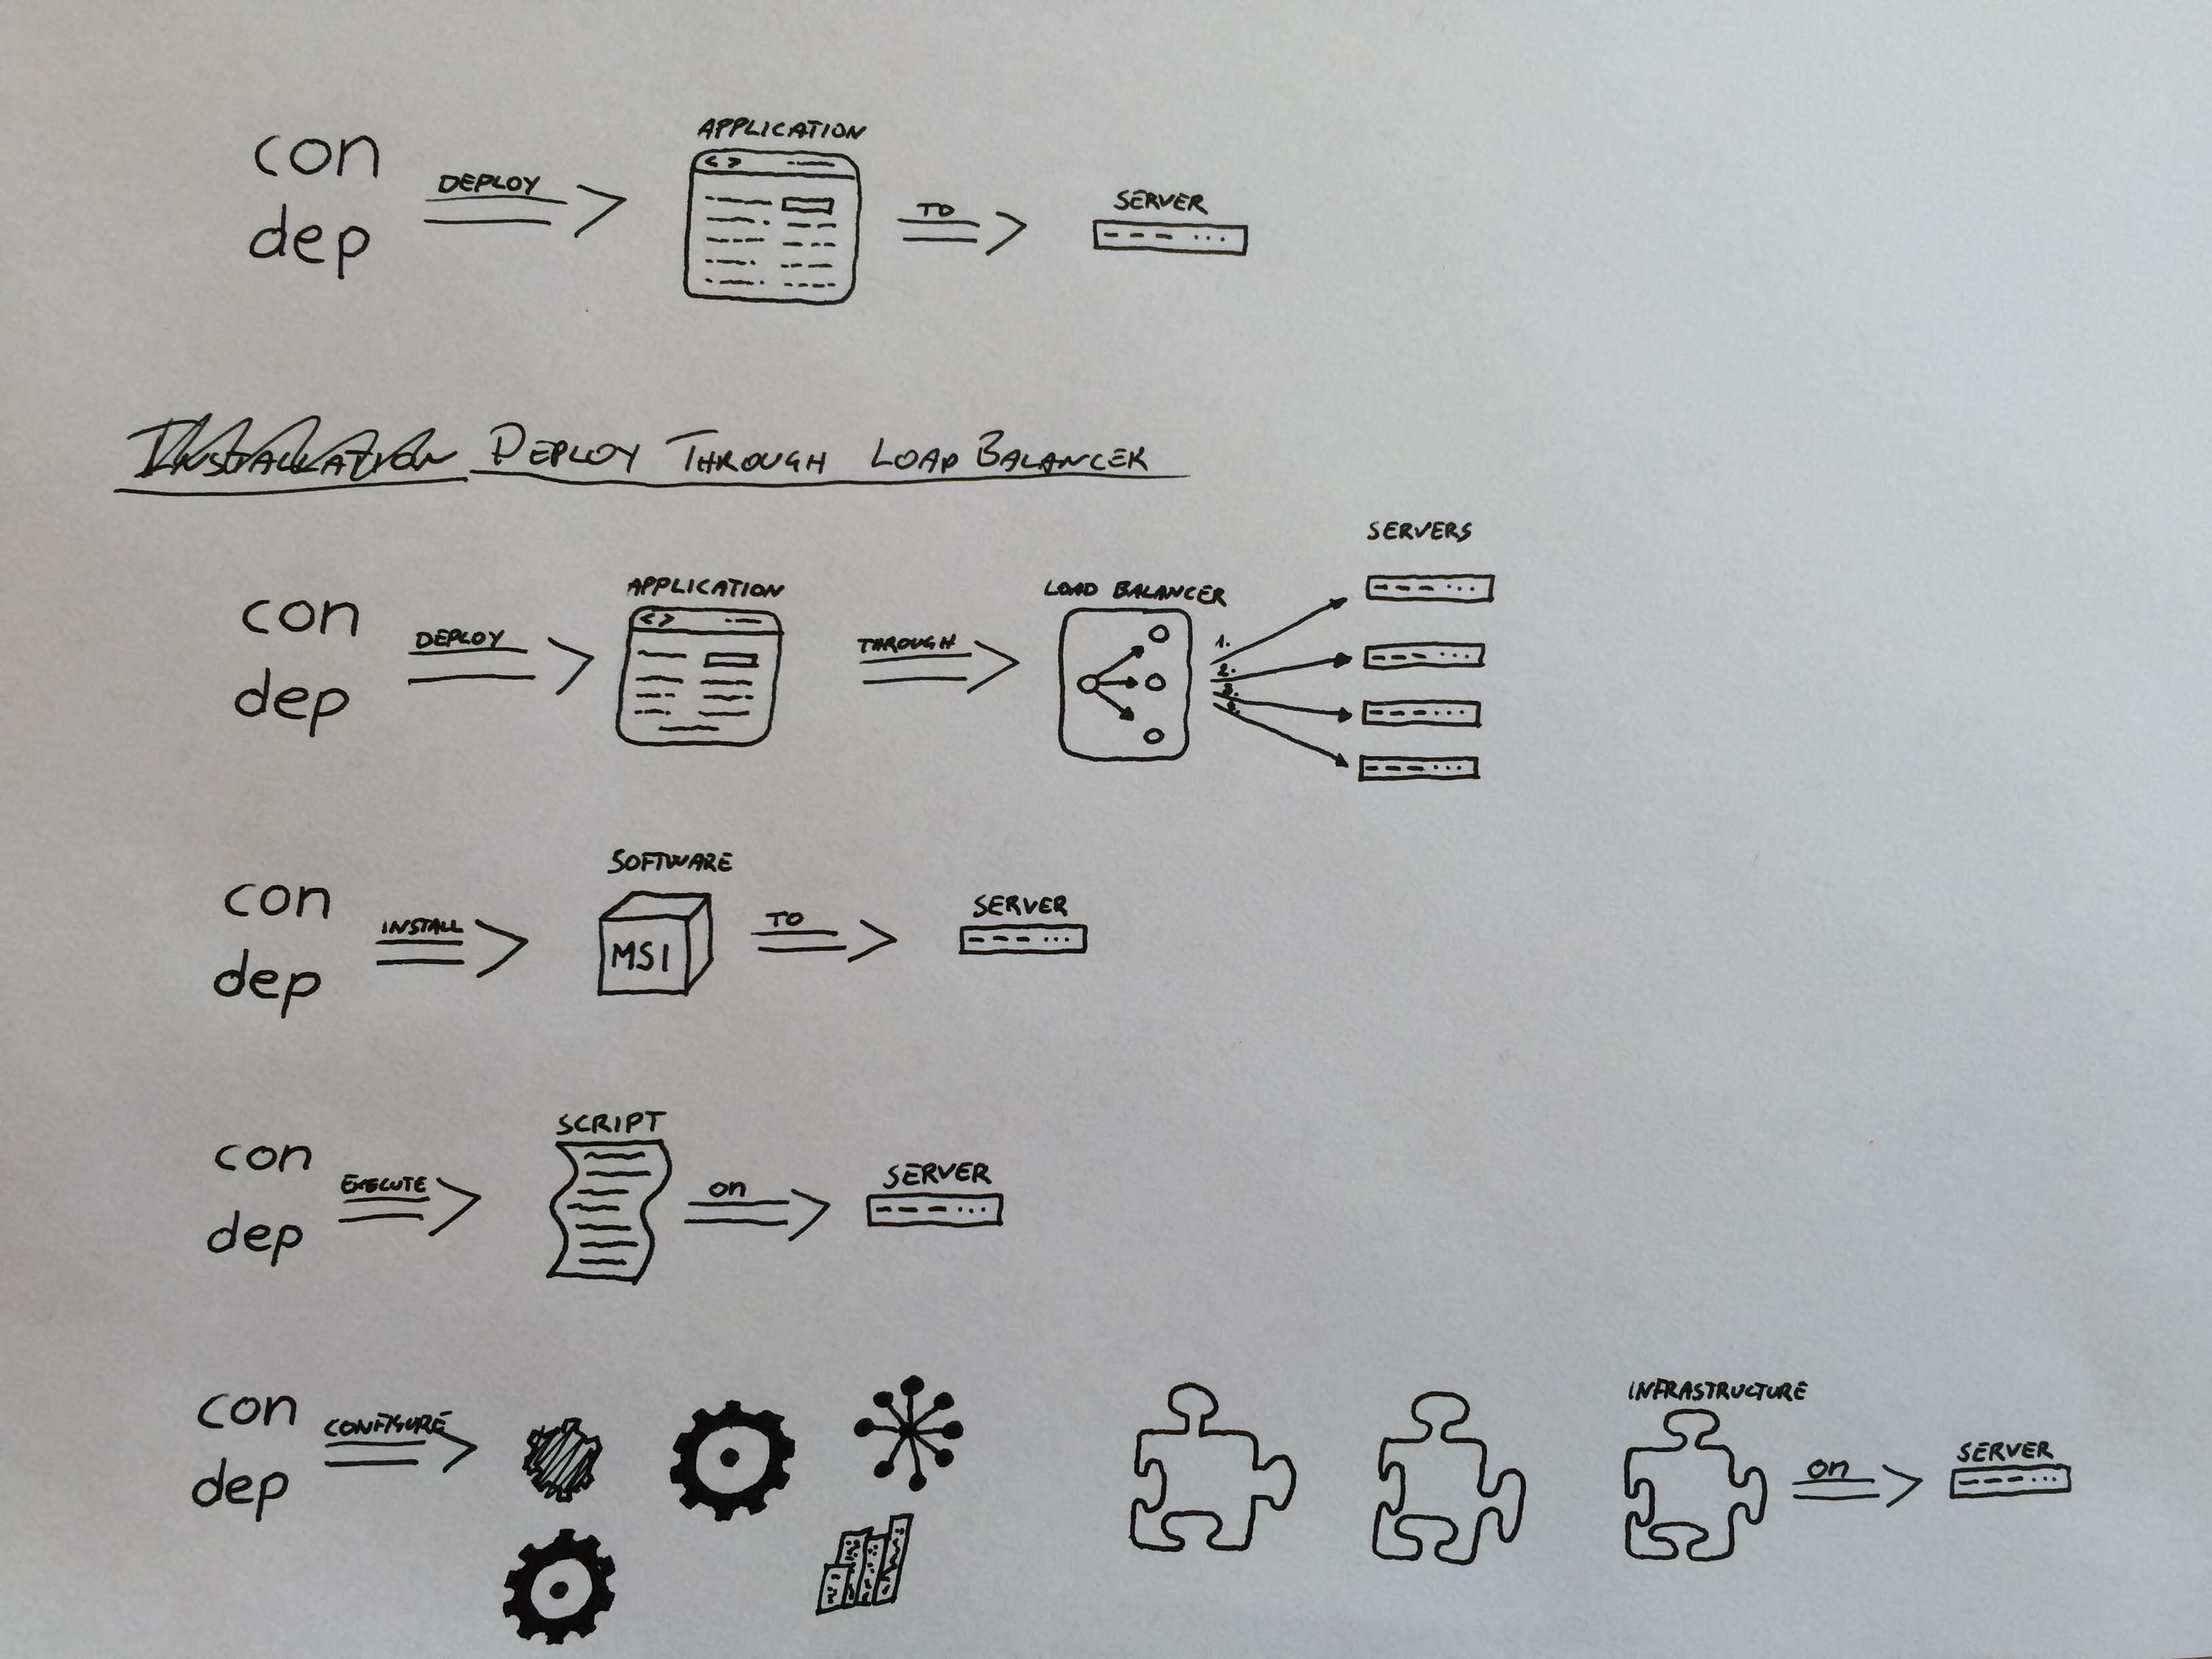 con
dep
DEPLOY
APPLICATION
< >
TO
SERVER
INSTALLATION DEPLOY THROUGH LOAD BALANCER
con
dep
DEPLOY
APPLICATION
< >
THROUGH
LOAD BALANCER
1.
2.
3.
SERVERS
con
dep
INSTALL
SOFTWARE
MSI
TO
SERVER
con
dep
EXECUTE
SCRIPT
on
SERVER
con
dep
CONFIGURE
INFRASTRUCTURE
on
SERVER